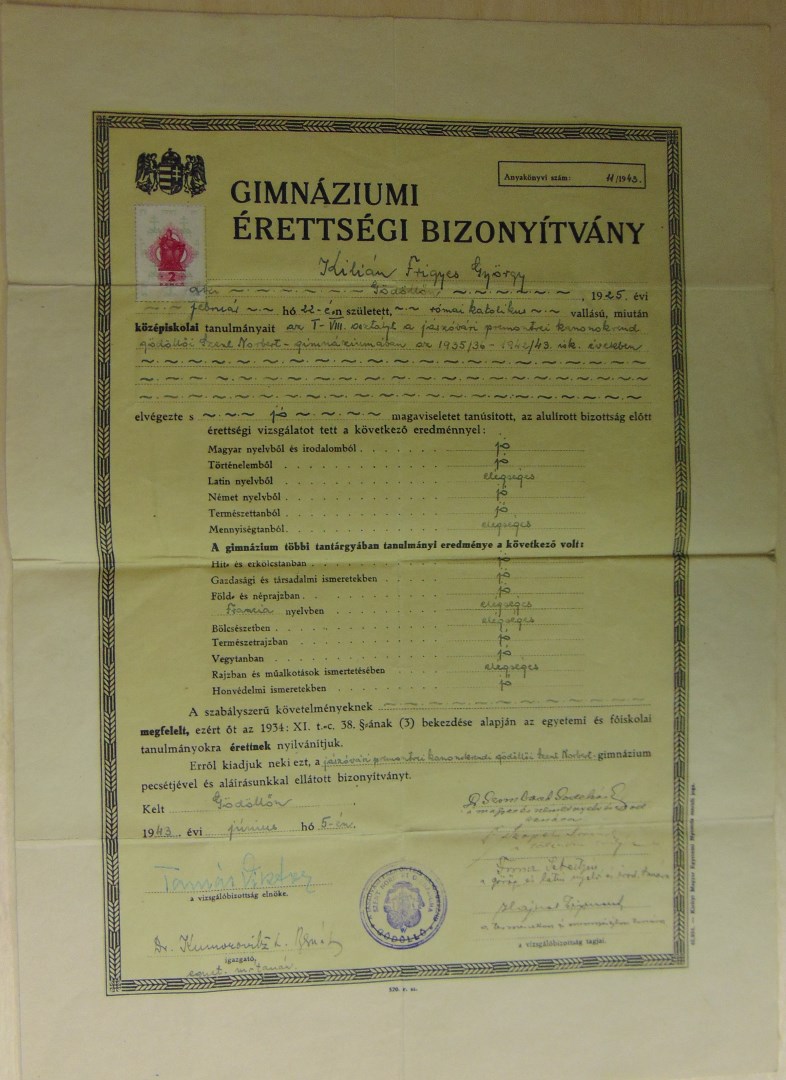 Anyakönyvi szám: 11/1943.
GIMNÁZIUMI
ÉRETTSÉGI BIZONYÍTVÁNY
2
Kilián Frigyes György
aki Gödöllőn, 1925. évi
február hó 22-én született, római katolikus vallású, miután
középiskolai tanulmányait az I-VIII. osztályt a jászóvári premontrei kanonokrend
gödöllői Szent Norbert-gimnáziumában az 1935/36-1942/43. isk. években
elvégezte s jó magaviseletet tanúsított, az alulírott bizottság előtt
érettségi vizsgálatot tett a következő eredménnyel:
Magyar nyelvből és irodalomból jó
Történelemből jó
Latin nyelvből elégséges
Német nyelvből jó
Természettanból jó
Mennyiségtanból elégséges
A gimnázium többi tantárgyában tanulmányi eredménye a következő volt:
Hit- és erkölcstanban jó
Gazdasági és társadalmi ismeretekben jó
Föld- és néprajzban jó
Francia nyelvben elégséges
Bölcsészetben elégséges
Természetrajzban jó
Vegytanban jó
Rajzban és műalkotások ismertetésében elégséges
Honvédelmi ismeretekben jó
A szabályszerű követelményeknek
megfelelt, ezért őt az 1934: XI. t.-c. 38. §-ának (3) bekezdése alapján az egyetemi és főiskolai
tanulmányokra érettnek nyilvánítjuk.
Erről kiadjuk neki ezt, a jászóvári premontrei kanonokrend gödöllői Szent Norbert-gimnázium
pecsétjével és aláírásunkkal ellátott bizonyítványt.
Kelt Gödöllőn
1943. évi június hó 5-én
Tamás
a vizsgálóbizottság elnöke.
GÖDÖLLŐ
Dr. Kumorovitz L. Bernát
igazgató,
a vizsgálóbizottság tagjai.